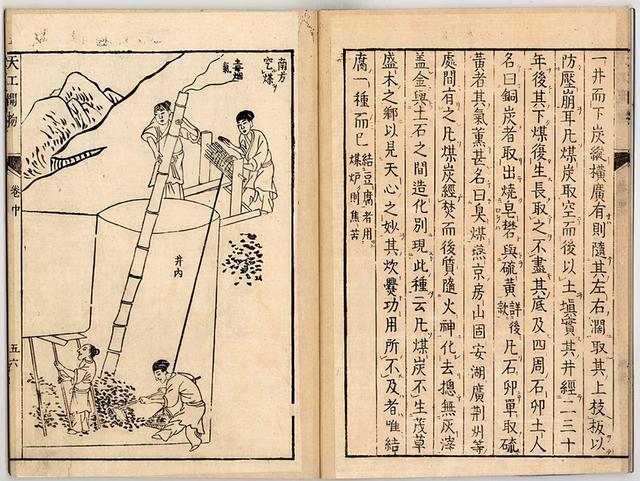 一井而下炭縱橫廣有則隨其左右濶取其上枝板以
防壓崩耳凡煤炭取空而後以土填實其井經二三十
年後其下煤復生長取之不盡其底及四周石卵土人
名曰銅炭者取出燒皂礬與硫黃詳後款凡石卵單取硫
黃者其氣薰甚名曰臭煤燕京房山固安湖廣荆州等
處間有之凡煤炭經焚而後質隨火神化去摠無灰滓
盖金與土石之間造化別現此種云凡煤炭不生茂草
盛木之鄉以見天心之妙其炊爨功用所不及者唯結
腐一種而已結豆腐者用煤爐則焦苦
南方
煤
毒烟
氣
井內
天工開物
卷中
五六